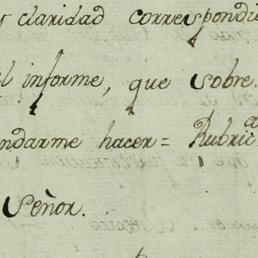 y claridad correspondi
el informe, que sobre
ndarme hacer = Rubrica
Señor.